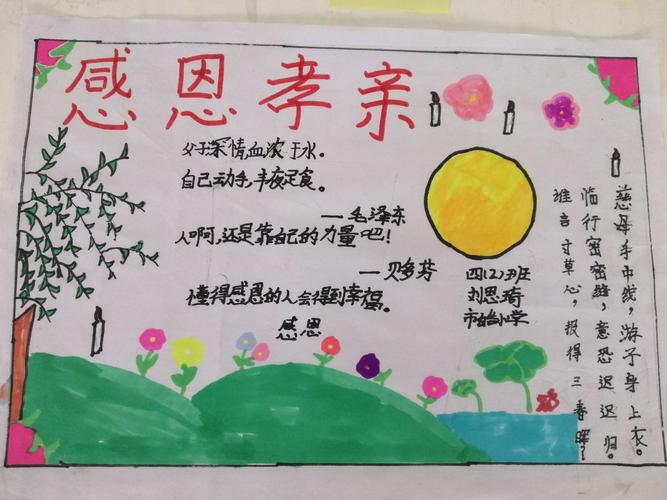 感恩孝亲
父子深情,血浓于水。
自己动手,丰衣足食。
——毛泽东
人啊,还是靠自己的力量吧!
——贝多芬
懂得感恩的人会得到幸福。
感恩
四(2)班
刘思琦
小学
慈母手中线,游子身上衣。
临行密密缝,意恐迟迟归。
谁言寸草心,报得三春晖?